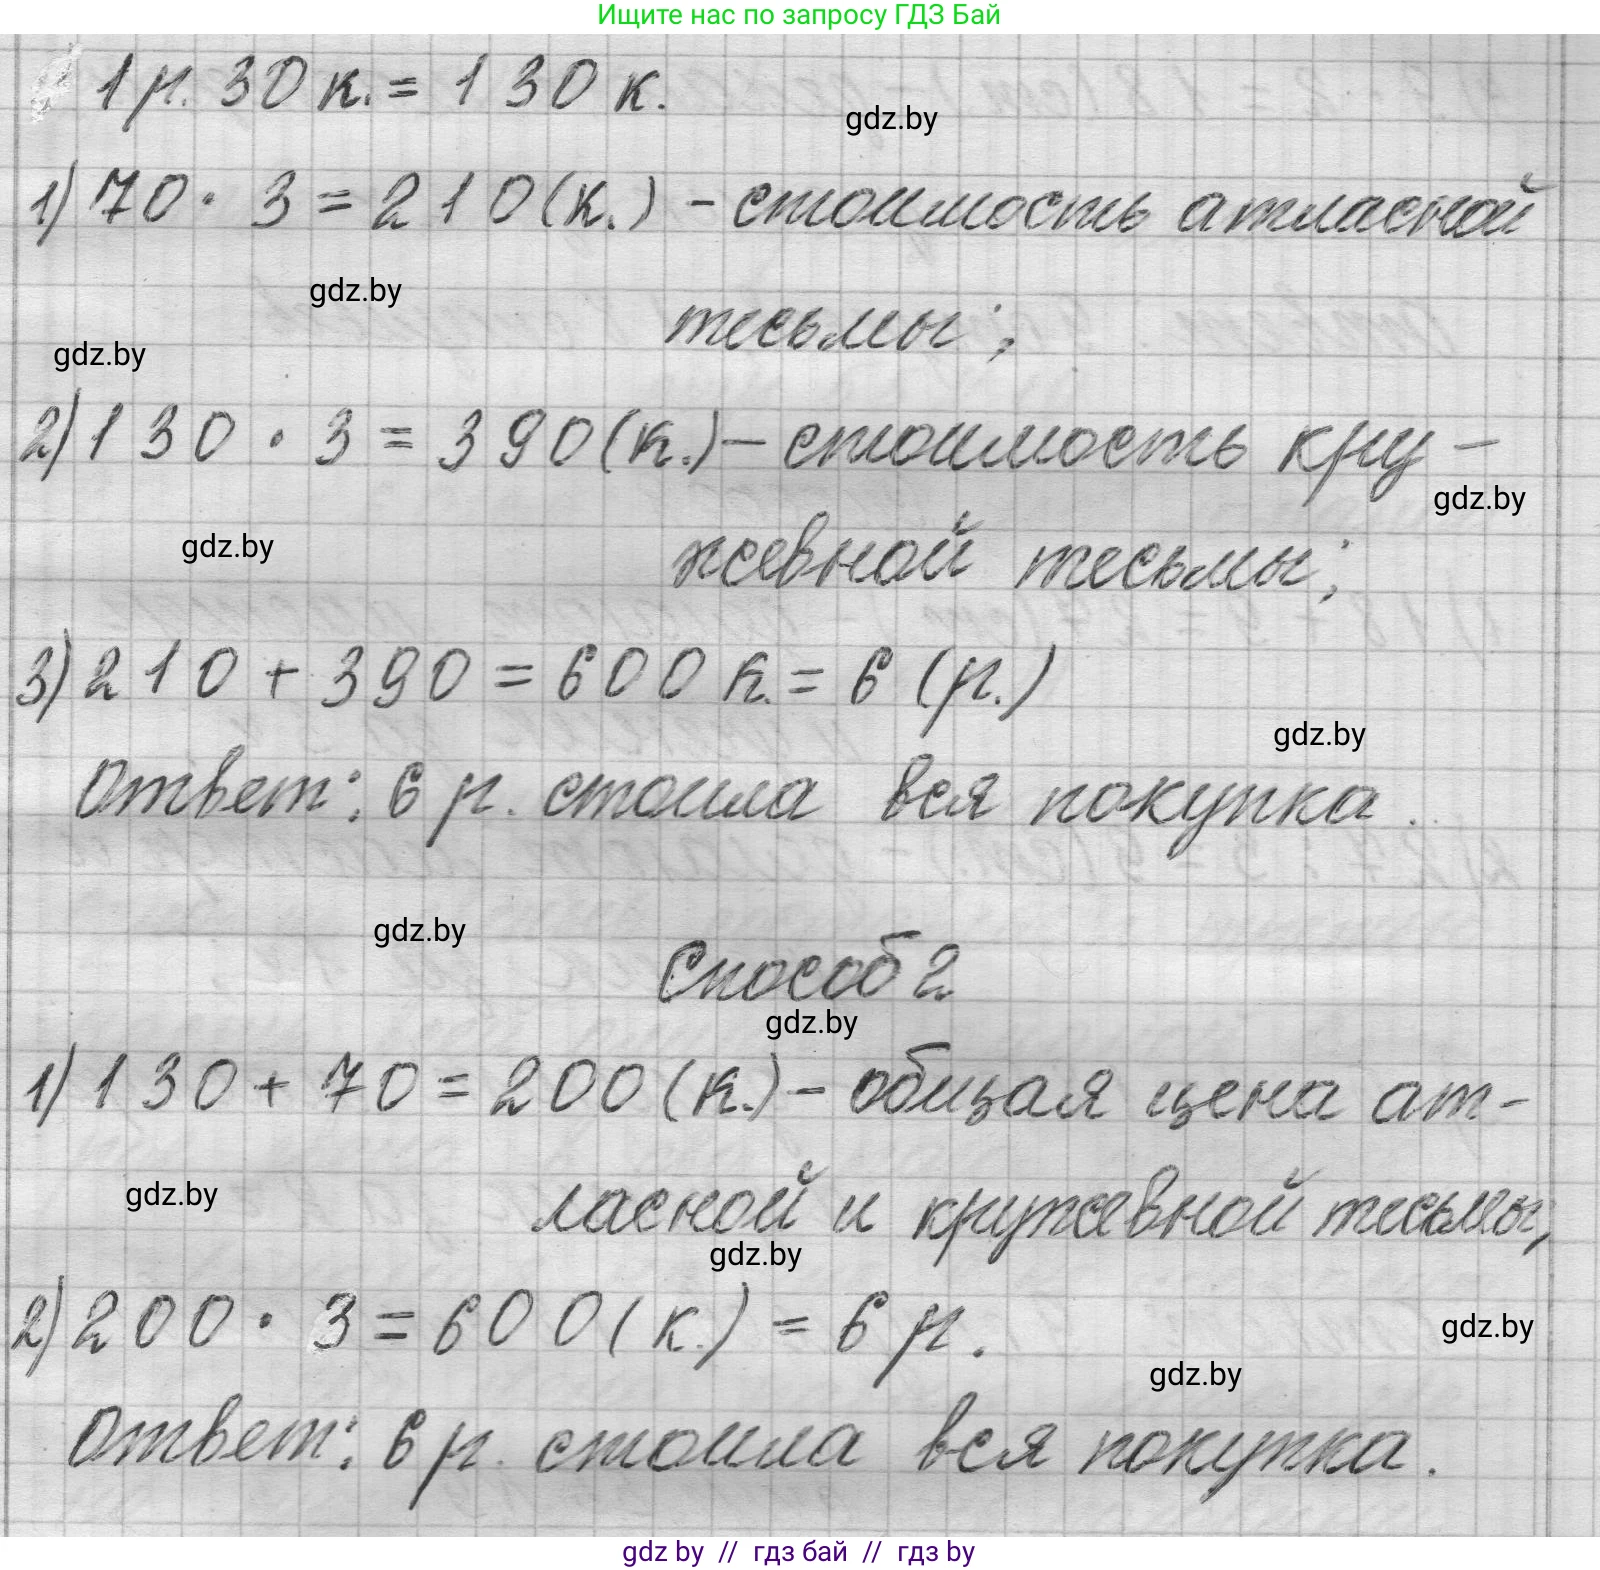 Ищите нас по запросу ГДЗ Бай
1 р. 30 к. = 130 к.
gdz.by
1) 70 · 3 = 210 (к.) - стоимость атласной
gdz.by
тесьмы;
gdz.by
2) 130 · 3 = 390 (к.) - стоимость кру-
gdz.by
gdz.by
жевной тесьмы;
3) 210 + 390 = 600 к. = 6 (р.)
gdz.by
Ответ: 6 р. стоила вся покупка.
gdz.by
Способ 2
gdz.by
1) 130 + 70 = 200 (к.) - общая цена ат-
gdz.by
ласной и кружевной тесьмы,
gdz.by
2) 200 · 3 = 600 (к.) = 6 р.
gdz.by
gdz.by
Ответ: 6 р. стоила вся покупка.
gdz by // гдз бай // гдз by